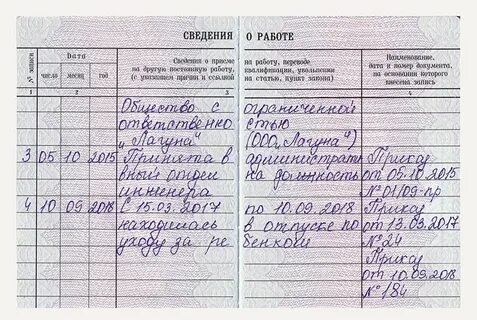 СВЕДЕНИЯ О РАБОТЕ
№ записи
Дата
число
месяц
год
Сведения о приеме на работу, переводе
на другую постоянную работу, квалификации, увольнении
(с указанием причин и ссылкой на статью, пункт закона)
Наименование,
дата и номер документа,
на основании которого
внесена запись
1 2 3 4
Общество с ограниченной
ответственностью
"Лагуна" (ООО "Лагуна")
3 05 10 2015 Принята в административ Приказ
вный отдел на должность от 05.10.2015
инженера № 01/09-пр
4 10 09 2018 С 15.03.2017 по 10.09.2018 Приказ
находилась в отпуске по от 13.03.2017
уходу за ребенком № 24
Приказ
от 10.09.2018
№ 184